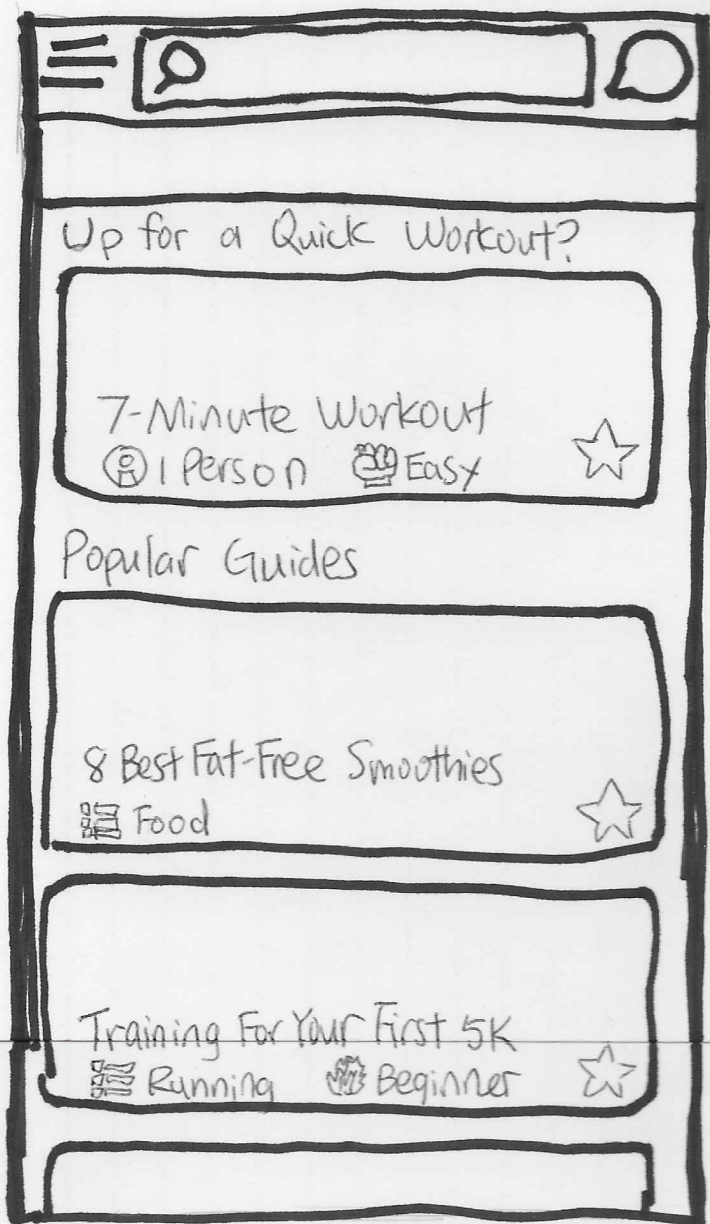 Up for a Quick Workout?
7-Minute Workout
1 Person Easy
Popular Guides
8 Best Fat-Free Smoothies
Food
Training For Your First 5K
Running Beginner